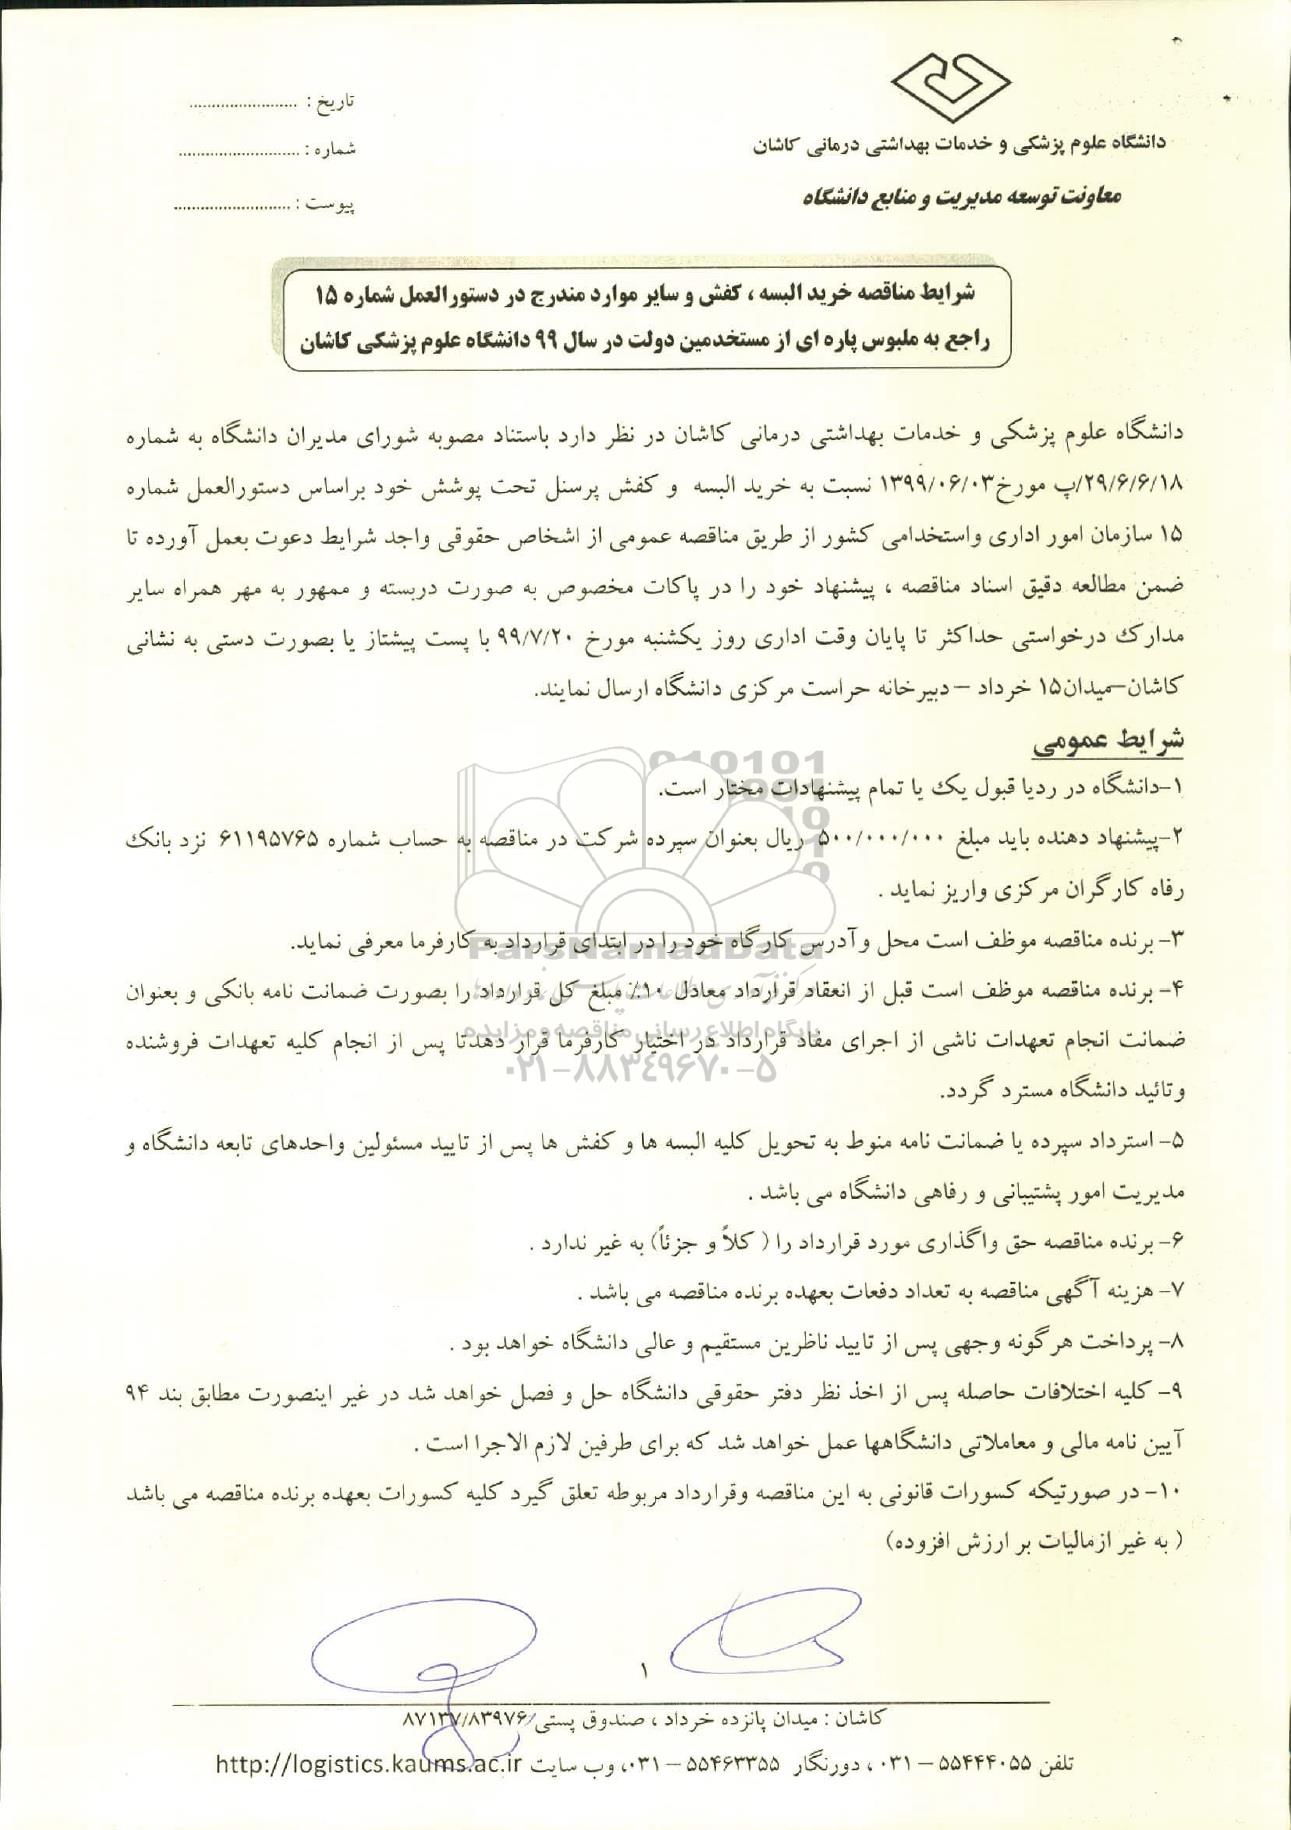 دانشگاه علوم پزشکی و خدمات بهداشتی درمانی کاشان
معاونت توسعه مدیریت و منابع دانشگاه
تاریخ : .........................
شماره : ............................
پیوست : ...........................
شرایط مناقصه خرید البسه ، کفش و سایر موارد مندرج در دستورالعمل شماره ۱۵
راجع به ملبوس پاره ای از مستخدمین دولت در سال ۹۹ دانشگاه علوم پزشکی کاشان
دانشگاه علوم پزشکی و خدمات بهداشتی درمانی کاشان در نظر دارد باستناد مصوبه شورای مدیران دانشگاه به شماره
۲۹/۶/۶/۱۸/پ مورخ۱۳۹۹/۰۶/۰۳ نسبت به خرید البسه و کفش پرسنل تحت پوشش خود براساس دستورالعمل شماره
۱۵ سازمان امور اداری واستخدامی کشور از طریق مناقصه عمومی از اشخاص حقوقی واجد شرایط دعوت بعمل آورده تا
ضمن مطالعه دقیق اسناد مناقصه ، پیشنهاد خود را در پاکات مخصوص به صورت دربسته و ممهور به مهر همراه سایر
مدارک درخواستی حداکثر تا پایان وقت اداری روز یکشنبه مورخ ۹۹/۷/۲۰ با پست پیشتاز یا بصورت دستی به نشانی
کاشان–میدان۱۵ خرداد – دبیرخانه حراست مرکزی دانشگاه ارسال نمایند.
شرایط عمومی
۱-دانشگاه در ردیا قبول یک یا تمام پیشنهادات مختار است.
۲-پیشنهاد دهنده باید مبلغ ۵۰۰/۰۰۰/۰۰۰ ریال بعنوان سپرده شرکت در مناقصه به حساب شماره ۶۱۱۹۵۷۶۵ نزد بانک
رفاه کارگران مرکزی واریز نماید .
۳- برنده مناقصه موظف است محل وآدرس کارگاه خود را در ابتدای قرارداد به کارفرما معرفی نماید.
ParsNamadData
۴- برنده مناقصه موظف است قبل از انعقاد قرارداد معادل ۱۰٪ مبلغ کل قرارداد را بصورت ضمانت نامه بانکی و بعنوان
پایگاه اطلاع رسانی مناقصه و مزایده
ضمانت انجام تعهدات ناشی از اجرای مفاد قرارداد در اختیار کارفرما قرار دهدتا پس از انجام کلیه تعهدات فروشنده
۰۲۱-۸۸۳۴۹۶۷۰-۵
وتائید دانشگاه مسترد گردد.
۵- استرداد سپرده یا ضمانت نامه منوط به تحویل کلیه البسه ها و کفش ها پس از تایید مسئولین واحدهای تابعه دانشگاه و
مدیریت امور پشتیبانی و رفاهی دانشگاه می باشد .
۶- برنده مناقصه حق واگذاری مورد قرارداد را ( کلاً و جزئاً) به غیر ندارد .
۷- هزینه آگهی مناقصه به تعداد دفعات بعهده برنده مناقصه می باشد .
۸- پرداخت هرگونه وجهی پس از تایید ناظرین مستقیم و عالی دانشگاه خواهد بود .
۹- کلیه اختلافات حاصله پس از اخذ نظر دفتر حقوقی دانشگاه حل و فصل خواهد شد در غیر اینصورت مطابق بند ۹۴
آیین نامه مالی و معاملاتی دانشگاهها عمل خواهد شد که برای طرفین لازم الاجرا است .
۱۰- در صورتیکه کسورات قانونی به این مناقصه وقرارداد مربوطه تعلق گیرد کلیه کسورات بعهده برنده مناقصه می باشد
( به غیر ازمالیات بر ارزش افزوده)
۱
کاشان : میدان پانزده خرداد ، صندوق پستی ۸۷۱۳۷/۸۳۹۷۶
تلفن ۵۵۴۴۴۰۵۵ – ۰۳۱ ، دورنگار ۵۵۴۶۳۳۵۵ – ۰۳۱، وب سایت http://logistics.kaums.ac.ir